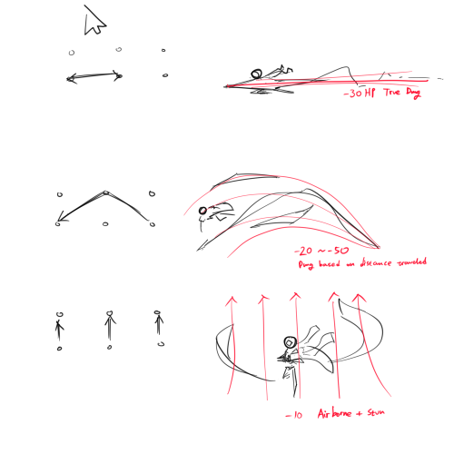 -30 HP True Dmg
-20 ~ -50
Dmg based on distance traveled
-10 Airborne + Stun